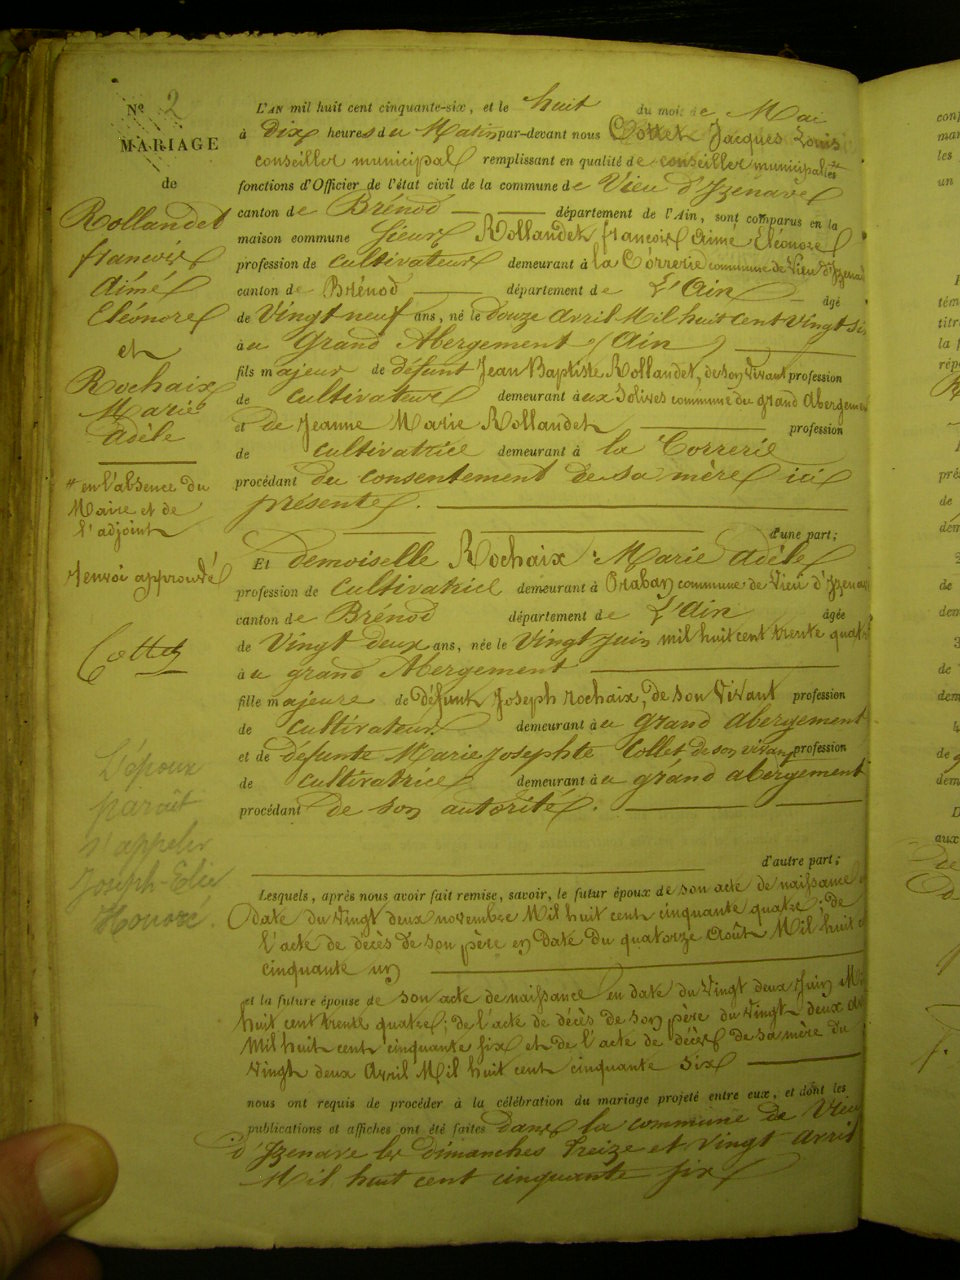 Nº 2
MARIAGE
de
Rollandet
françois
Aimé
Eléonore
et
Rochaix
Marie
Adèle
# en l'absence du
Maire et de
l'adjoint
renvoi approuvé
Cottet
L'époux
paraît
s'appeler
Joseph-Elie
Honoré.
L'AN mil huit cent cinquante-six, et le huit du mois de Mai
à Dix heures du Matin par-devant nous Cottet Jacques Louis
conseiller municipal remplissant en qualité de conseiller municipal les
fonctions d'Officier de l'état civil de la commune de Vieu d'Izenave
canton de Brénod département de l'Ain, sont comparus en la
maison commune sieur Rollandet françois Aimé Eléonore
profession de cultivateur demeurant à la Correrie commune de Vieu d'Izenave
canton de Brénod département de L'Ain âgé
de Vingt neuf ans, né le douze avril Mil huit cent vingt
à au Grand Abergement (Ain)
fils majeur de défunt Jean Baptiste Rollandet, de son vivant profession
de cultivateur demeurant à aux Solives commune du grand Abergement
et de Jeanne Marie Rollandet profession
de cultivatrice demeurant à la Correrie
procédant du consentement de sa mère ici
présente.
d'une part;
Et demoiselle Rochaix Marie Adèle
profession de cultivatrice demeurant à commune de Vieu d'Izenave
canton de Brénod département de L'Ain âgée
de Vingt deux ans, née le Vingt juin mil huit cent trente quatre
à au grand Abergement
fille majeure de défunt Joseph rochaix, de son Vivant profession
de cultivateur demeurant à au grand abergement
et de défunte Marie Josephte Collet de son vivant profession
de cultivatrice demeurant à au grand abergement
procédant de son autorité.
d'autre part;
Lesquels, après nous avoir fait remise, savoir, le futur époux de son acte de naissance
date du vingt deux novembre Mil huit cent cinquante quatre; de
l'acte de décès de son père en date du quatorze Août Mil huit
cinquante un
et la future épouse de son acte de naissance en date du Vingt deux Juin
huit cent trente quatre; de l'acte de décès de son père du Vingt deux
Mil huit cent cinquante six et de l'acte de décès de sa mère du
Vingt deux Avril Mil huit cent cinquante six
nous ont requis de procéder à la célébration du mariage projeté entre eux, et dont les
publications et affiches ont été faites dans la commune de Vieu
d'Izenave les dimanches treize et vingt avril
Mil huit cent cinquante six